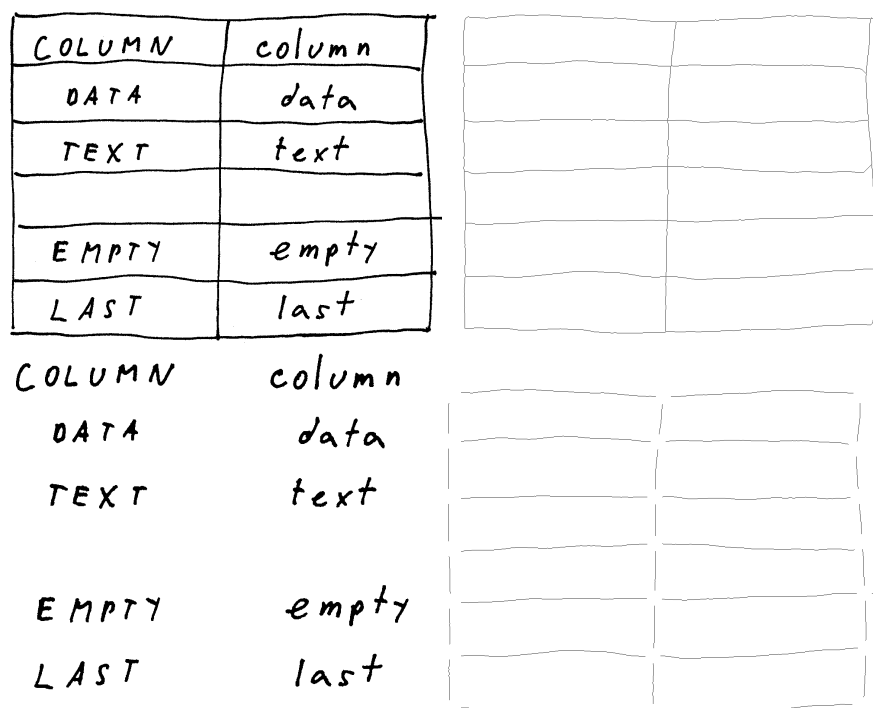 COLUMN column
DATA data
TEXT text
EMPTY empty
LAST last
COLUMN column
DATA data
TEXT text
EMPTY empty
LAST last